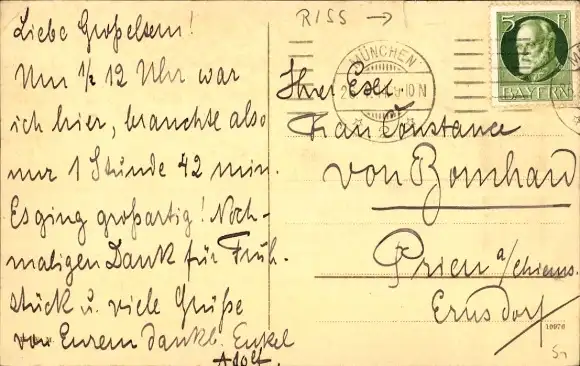 RISS →
Liebe Großeltern!
Um ½ 12 Uhr war
ich hier, brauchte also
nur 1 Stunde 42 min.
Es ging großartig! Noch-
maligen Dank für Früh-
stück u. viele Grüße
von Eurem dankb. Enkel
Adolf.
5 Pf
BAYERN
MÜNCHEN
9-10 N
2
Ihrer Exc
Frau Constance
von Bomhard
Prien a/Chiems.
Ernsdorf